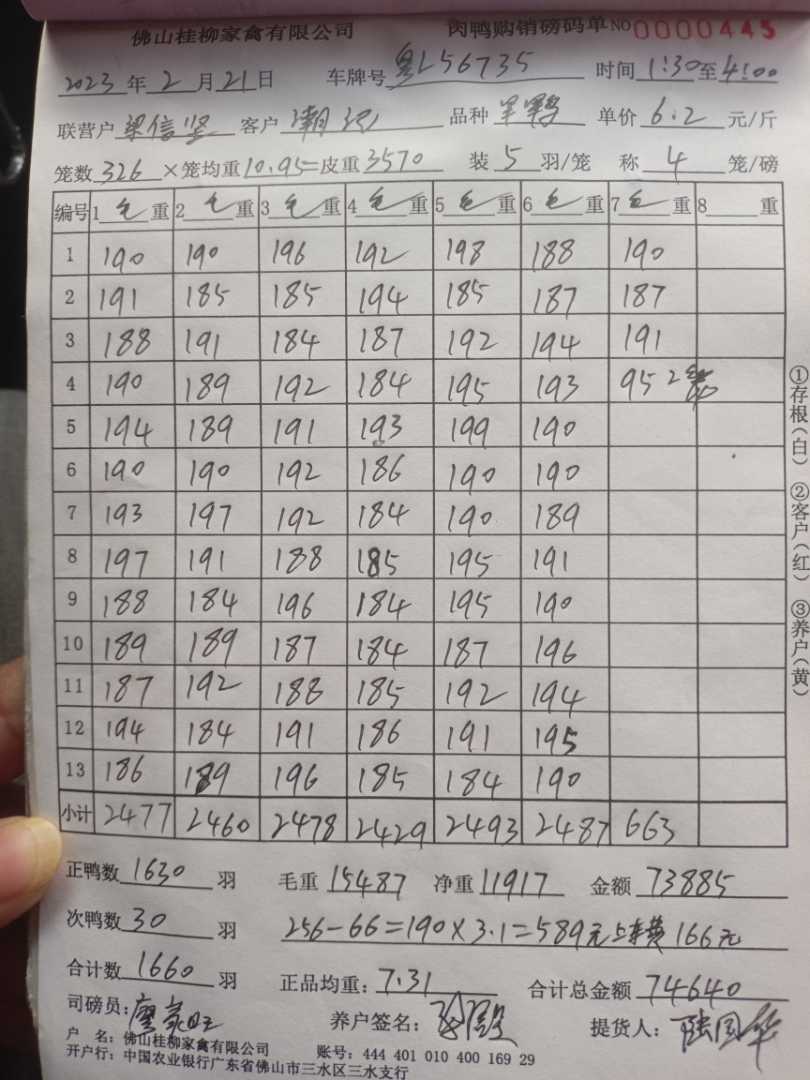 佛山桂柳家禽有限公司 肉鸭购销磅码单 NO 0000445
2023年2月21日 车牌号 粤L56735 时间 1:30至4:00
联营户 梁信坚 客户 品种 单价 6.2 元/斤
笼数 326 ×笼均重 10.95=皮重 3570 装 5 羽/笼 称 4 笼/磅
编号 1 毛 重 2 毛 重 3 毛 重 4 毛 重 5 毛 重 6 毛 重 7 毛 重 8 重
1 190 190 196 192 198 188 190
2 191 185 185 194 185 187 187
3 188 191 184 187 192 194 191
4 190 189 192 184 195 193 95 2笼
5 194 189 191 193 199 190
6 190 190 192 186 190 190
7 193 197 192 184 190 189
8 197 191 188 185 195 191
9 188 184 196 184 195 190
10 189 189 187 184 187 196
11 187 192 188 185 192 194
12 194 184 191 186 191 195
13 186 189 196 185 184 190
小计 2477 2460 2478 2429 2493 2487 663
正鸭数 1630 羽 毛重 15487 净重 11917 金额 73885
次鸭数 30 羽 256-66=190×3.1=589元 上车费 166元
合计数 1660 羽 正品均重: 7.31 合计总金额 74640
司磅员: 养户签名: 提货人: 陆国华
户 名: 佛山桂柳家禽有限公司 账号: 444 401 010 400 169 29
开户行: 中国农业银行广东省佛山市三水区三水支行
①存根(白) ②客户(红) ③养户(黄)